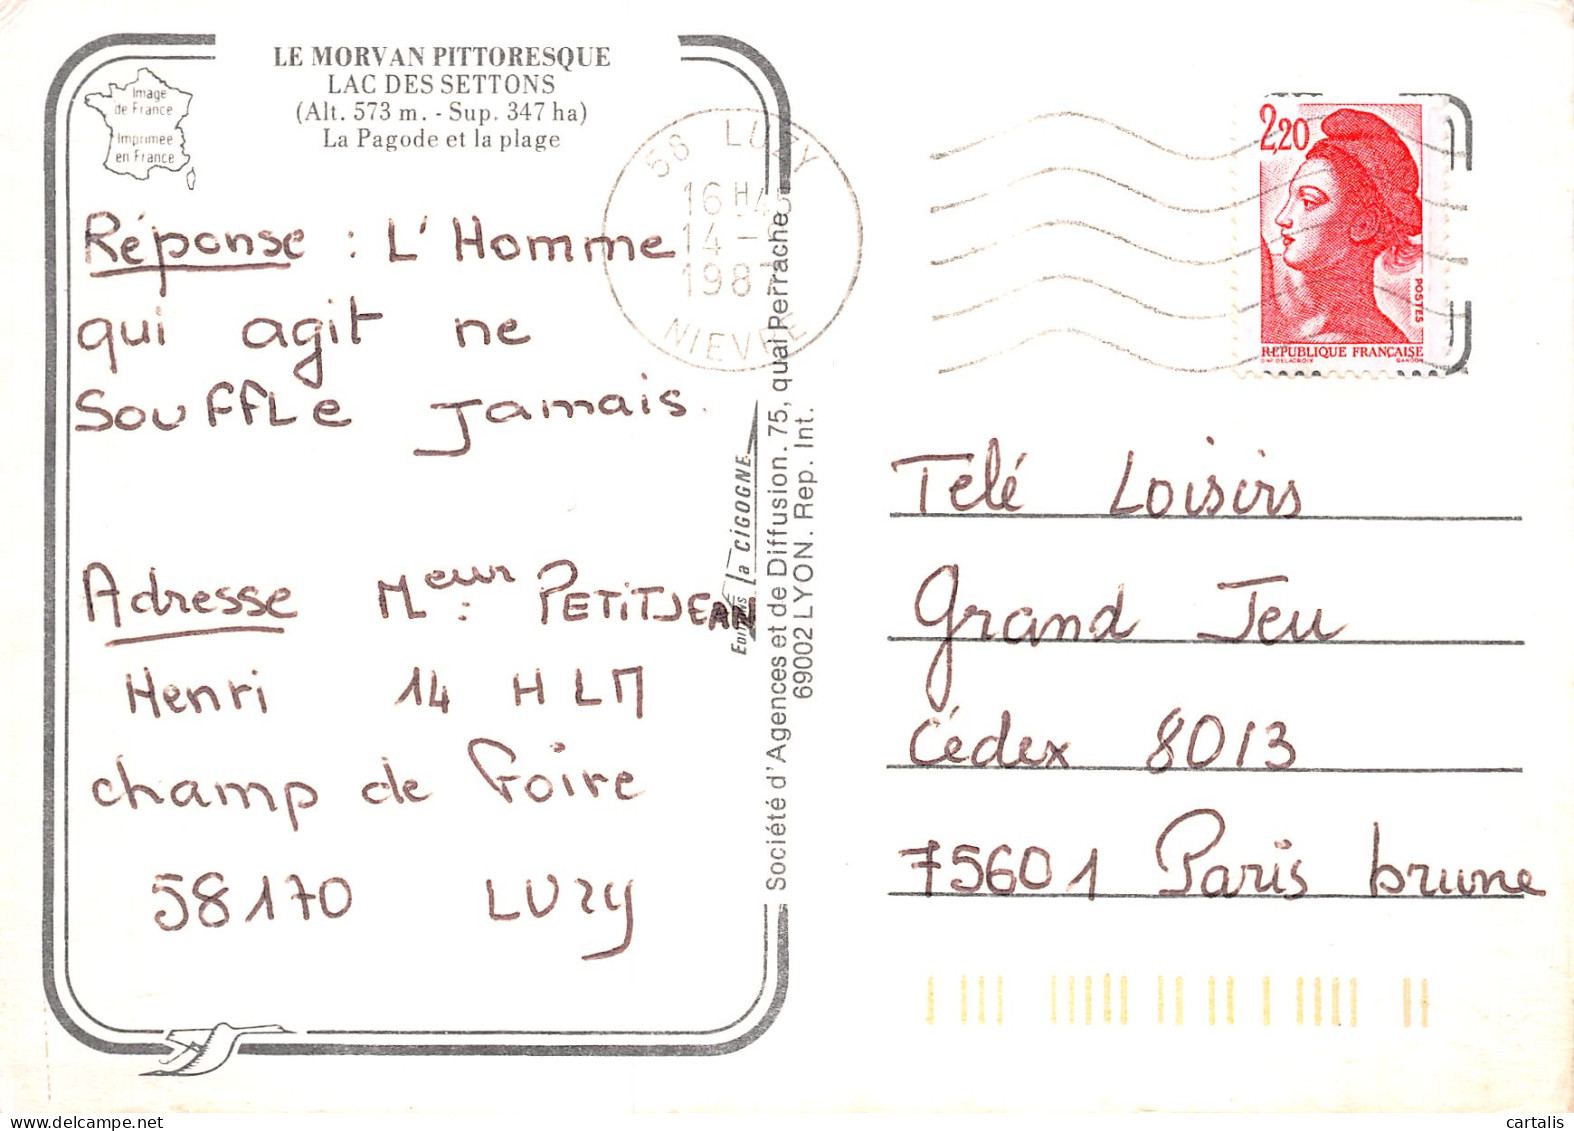 LE MORVAN PITTORESQUE
LAC DES SETTONS
(Alt. 573 m. - Sup. 347 ha)
La Pagode et la plage
Image
de France
Imprimée
en France
Réponse : L'Homme
qui agit ne
Souffle Jamais.
Adresse Meur : PETITJEAN
Henri 14 HLM
champ de Foire
58170 LUZY
Editions la CIGOGNE
Société d'Agences et de Diffusion. 75, quai Perrache
69002 LYON. Rep. Int.
58 LUZY
16 H 45
14 -
198
NIEVRE
2,20
POSTES
REPUBLIQUE FRANÇAISE
D'AP. DELACROIX GANDON
Télé Loisirs
Grand Jeu
Cédex 8013
75601 Paris brune
cartalis